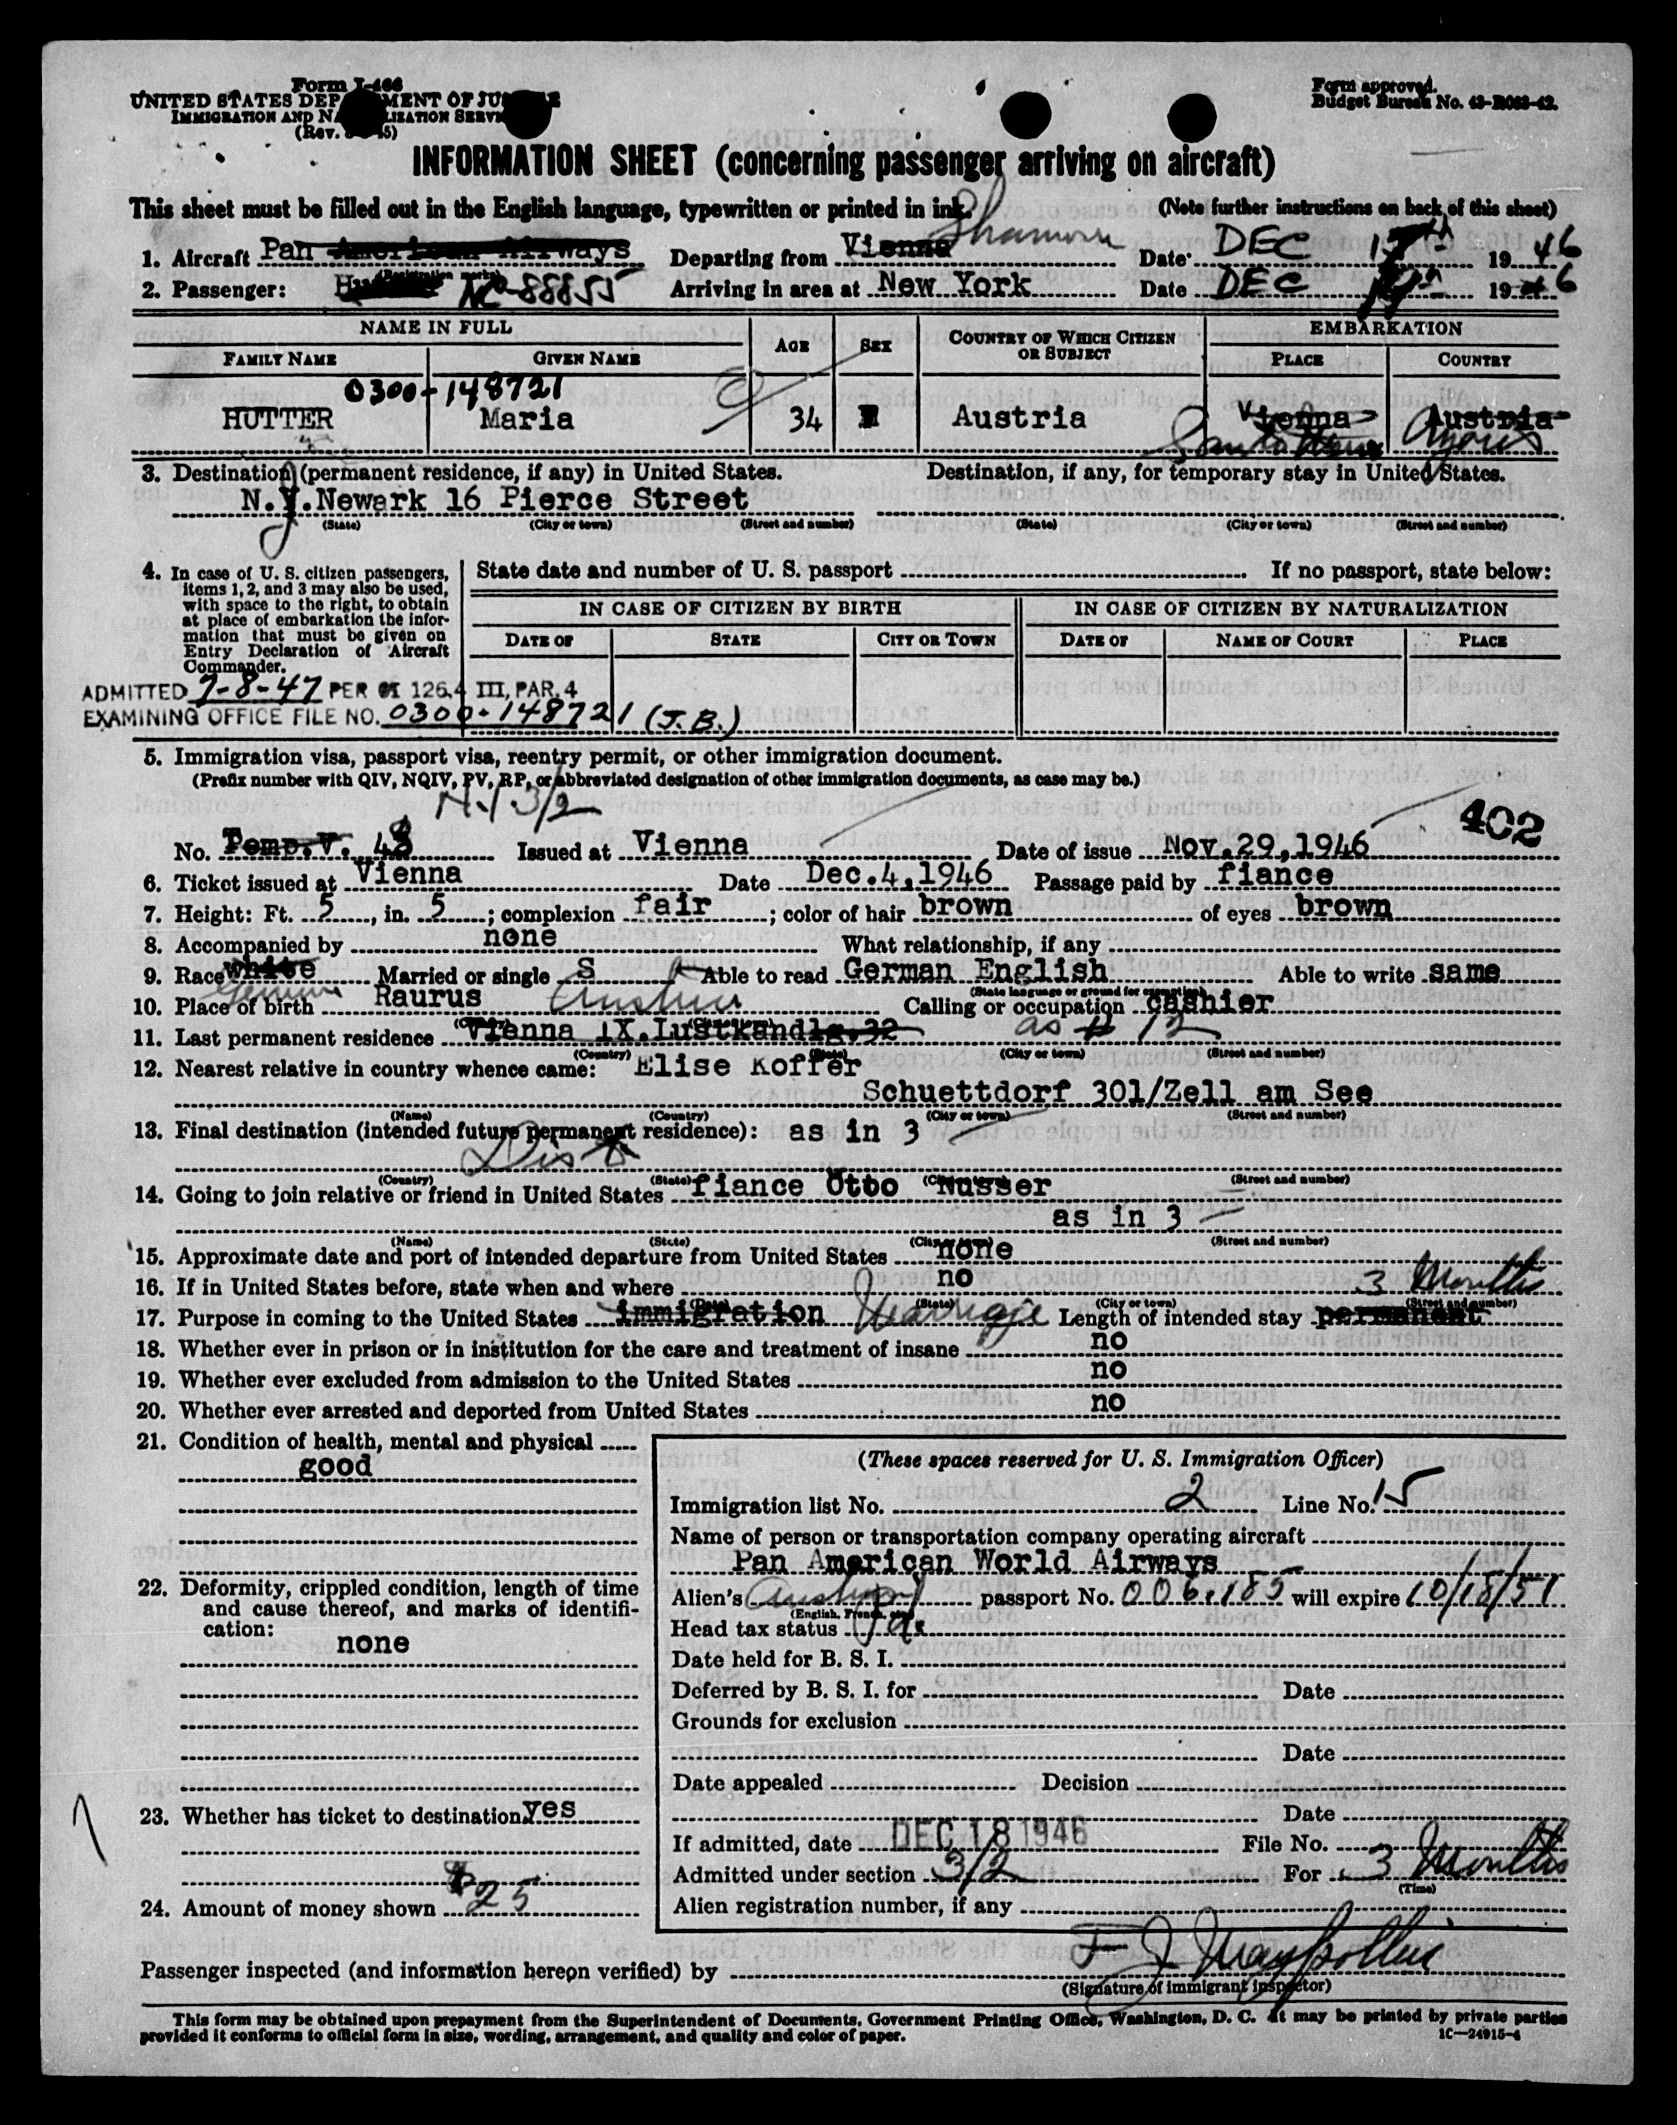 Form I-466
UNITED STATES DEPARTMENT OF JUSTICE
IMMIGRATION AND NATURALIZATION SERVICE
(Rev. 45)
Form approved.
Budget Bureau No. 43-R083-42.
INFORMATION SHEET (concerning passenger arriving on aircraft)
This sheet must be filled out in the English language, typewritten or printed in ink.
(Note further instructions on back of this sheet)
Shannon
1. Aircraft Pan American Airways Departing from Vienna Date DEC 17th 1946
(Registration marks)
2. Passenger: NC-88855 Arriving in area at New York Date DEC 1946
NAME IN FULL AGE SEX COUNTRY OF WHICH CITIZEN OR SUBJECT EMBARKATION
FAMILY NAME GIVEN NAME PLACE COUNTRY
0300-148721
HUTTER Maria 34 Austria Vienna Austria
Santa Maria Azores
3. Destination (permanent residence, if any) in United States. Destination, if any, for temporary stay in United States.
N.J.Newark 16 Pierce Street
(State) (City or town) (Street and number) (State) (City or town) (Street and number)
4. In case of U. S. citizen passengers,
items 1, 2, and 3 may also be used,
with space to the right, to obtain
at place of embarkation the infor-
mation that must be given on
Entry Declaration of Aircraft
Commander.
State date and number of U. S. passport If no passport, state below:
IN CASE OF CITIZEN BY BIRTH IN CASE OF CITIZEN BY NATURALIZATION
DATE OF STATE CITY OR TOWN DATE OF NAME OF COURT PLACE
ADMITTED 7-8-47 PER OI 126.4 III, PAR. 4
EXAMINING OFFICE FILE NO. 0300-148721 (J.B.)
5. Immigration visa, passport visa, reentry permit, or other immigration document.
(Prefix number with QIV, NQIV, PV, RP, or abbreviated designation of other immigration documents, as case may be.)
3/2
402
No. Temp.V. 48 Issued at Vienna Date of issue Nov.29,1946
6. Ticket issued at Vienna Date Dec.4,1946 Passage paid by fiance
7. Height: Ft. 5, in. 5; complexion fair; color of hair brown of eyes brown
8. Accompanied by none What relationship, if any
9. Race white Married or single S Able to read German English Able to write same
German (State language or ground for exemption)
10. Place of birth Raurus Austria Calling or occupation cashier
(City) as # 12
11. Last permanent residence Vienna IX.Lustkandlg.32
(Country) (State) (City or town) (Street and number)
12. Nearest relative in country whence came: Elise Koffer
Schuettdorf 301/Zell am See
(Name) (Country) (City or town) (Street and number)
13. Final destination (intended future permanent residence): as in 3
(Country) (State) (City or town) (Street and number)
14. Going to join relative or friend in United States fiance Otto Nusser
as in 3
(Name) (State) (City or town) (Street and number)
15. Approximate date and port of intended departure from United States none
16. If in United States before, state when and where no 3 Months
(Date) (State) (City or town) (Street and number)
17. Purpose in coming to the United States immigration Marriage Length of intended stay permanent
18. Whether ever in prison or in institution for the care and treatment of insane no
19. Whether ever excluded from admission to the United States no
20. Whether ever arrested and deported from United States no
21. Condition of health, mental and physical
good
22. Deformity, crippled condition, length of time
and cause thereof, and marks of identifi-
cation:
none
23. Whether has ticket to destination yes
24. Amount of money shown $25
(These spaces reserved for U. S. Immigration Officer)
Immigration list No. 2 Line No. 15
Name of person or transportation company operating aircraft
Pan American World Airways
Alien's Austrian passport No. 006.185 will expire 10/18/51
(English, French, etc.)
Head tax status
Date held for B. S. I.
Deferred by B. S. I. for Date
Grounds for exclusion
Date
Date appealed Decision
Date
If admitted, date DEC 18 1946 File No.
Admitted under section 3/2 For 3 Months
(Time)
Alien registration number, if any
Passenger inspected (and information hereon verified) by
(Signature of immigrant inspector)
This form may be obtained upon prepayment from the Superintendent of Documents, Government Printing Office, Washington, D. C. It may be printed by private parties
provided it conforms to official form in size, wording, arrangement, and quality and color of paper.
16—24915-4